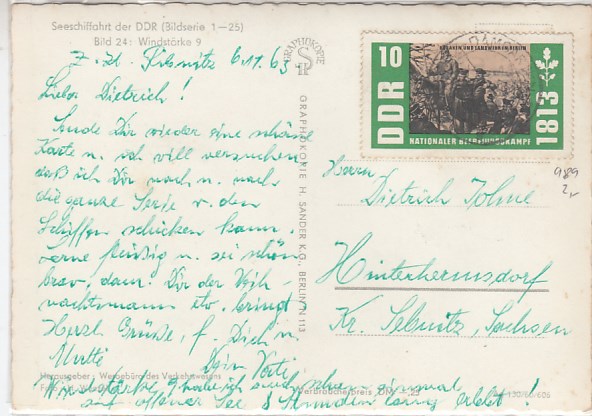 Seeschiffahrt der DDR (Bildserie 1—25)
Bild 24: Windstärke 9
z. Zt. Sebnitz 6.11.63
Lieber Dietrich!
Sende Dir wieder eine schöne
Karte u. ich will versuchen
daß ich Dir nach u. nach
die ganze Serie v. den
Schiffen schicken kann.
Lerne fleißig u. sei schön
brav, dann Dir der Weih-
nachtsmann etw. bringt
Herzl. Grüße, f. Dich u.
Mutti Dein Vati
Windstärke 9 habe ich auch schon einmal
auf offener See 8 Stunden lang erlebt!
Herausgeber: Werbebüro des Verkehrswesens
Verbraucherpreis DM -,25
130/60/606
GRAPHOKOPIE
GRAPHOKOPIE H. SANDER K.G., BERLIN N 113
10
DDR
KOSAKEN UND LANDWEHR IN BERLIN
NATIONALER BEFREIUNGSKAMPF
1813
989
2,-
Herrn
Dietrich Tohne
Hinterhermsdorf
Kr. Sebnitz, Sachsen